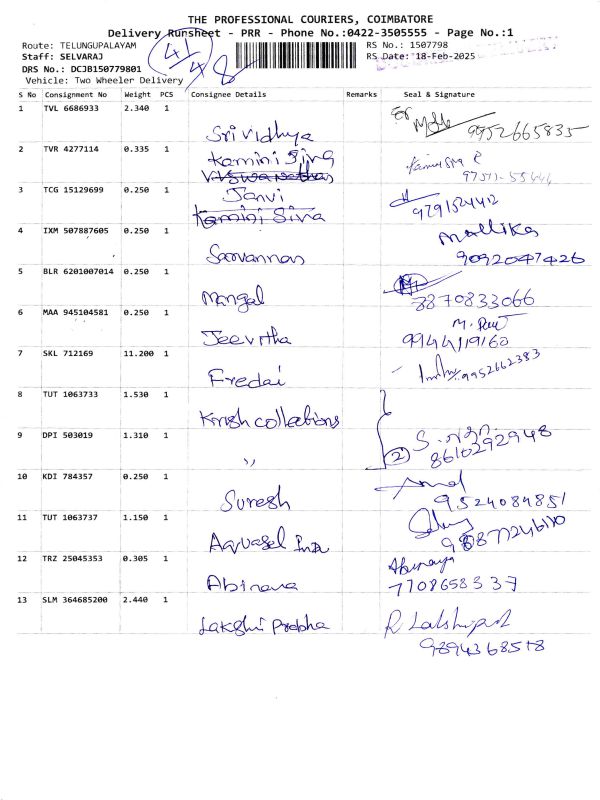 THE PROFESSIONAL COURIERS, COIMBATORE
Delivery Runsheet - PRR - Phone No.:0422-3505555 - Page No.:1
Route: TELUNGUPALAYAM RS No.: 1507798
Staff: SELVARAJ RS Date: 18-Feb-2025
DRS No.: DCJB150779801
Vehicle: Two Wheeler Delivery
41
48
S No Consignment No Weight PCS Consignee Details Remarks Seal & Signature
1 TVL 6686933 2.340 1
Srividhya 9952665835
2 TVR 4277114 0.335 1
Kamini Siva
Viswanathan
3 TCG 15129699 0.250 1
Janvi
Kamini Siva
4 IXM 507887605 0.250 1 Mallika
Saravanan 9092047426
5 BLR 6201007014 0.250 1
Mangal 8870833066
6 MAA 945104581 0.250 1
Jeevitha 9944119160
7 SKL 712169 11.200 1
Fredai 9952662383
8 TUT 1063733 1.530 1
Krish collections
9 DPI 503019 1.310 1
,, 2 8610292948
10 KDI 784357 0.250 1
Suresh 9524084851
11 TUT 1063737 1.150 1
Aquasel India
12 TRZ 25045353 0.305 1 Abinaya
Abinaya 7708658337
13 SLM 364685200 2.440 1
Lakshmi Prabha
9894368518